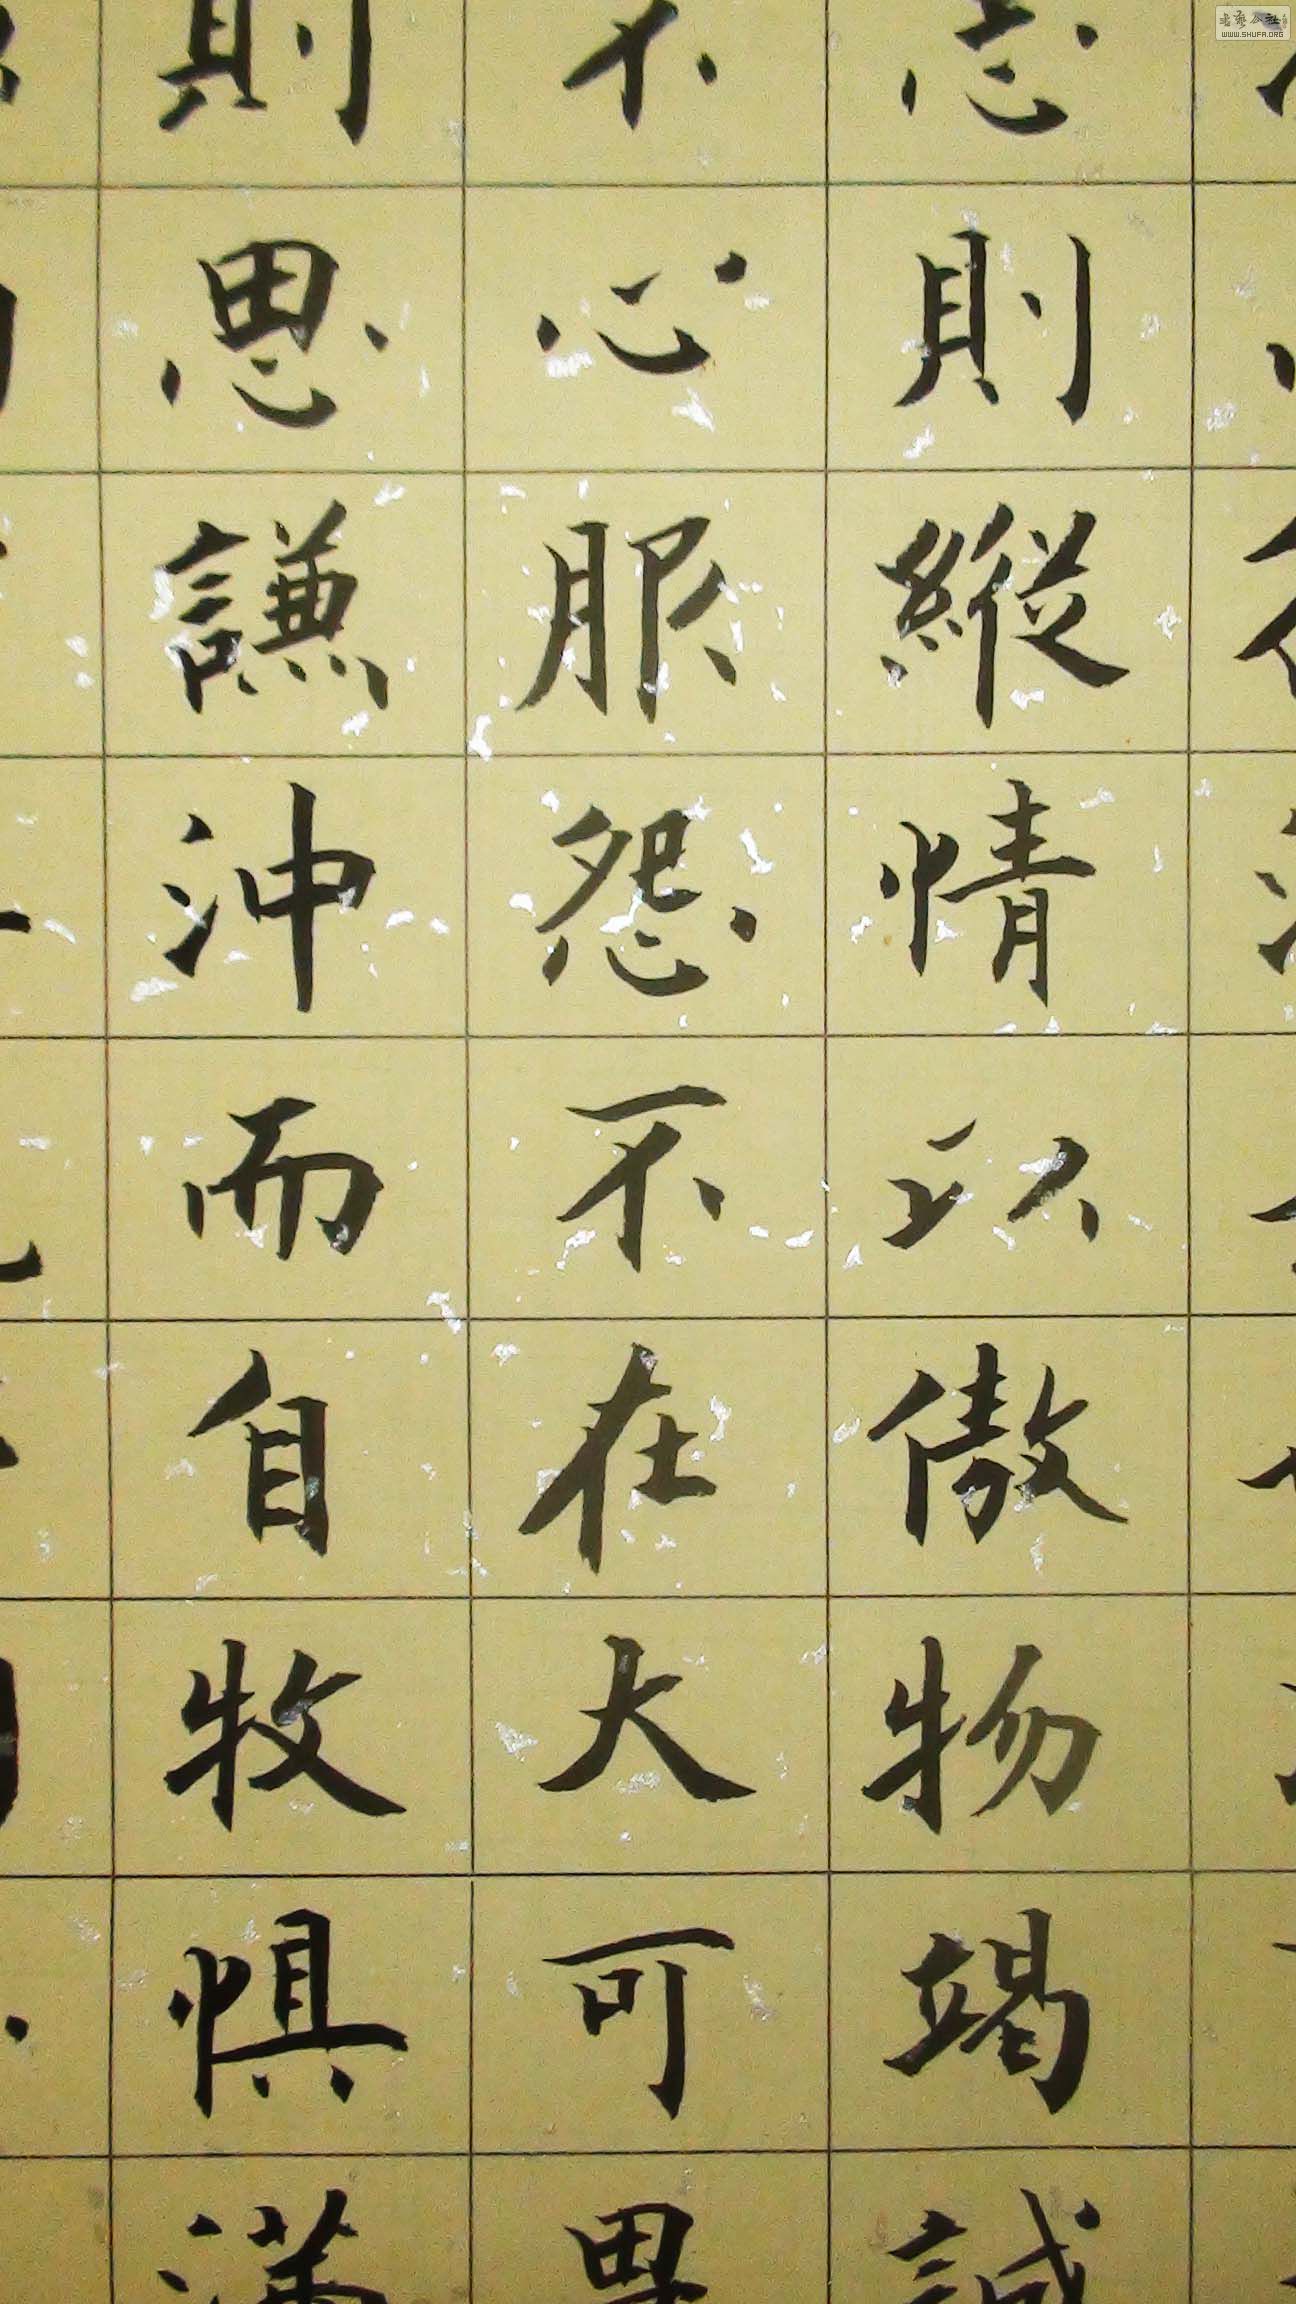 志則縱情以傲物竭誠
不心服怨不在大可畏
則思謙沖而自牧懼滿
書藝公社
WWW.SHUFA.ORG